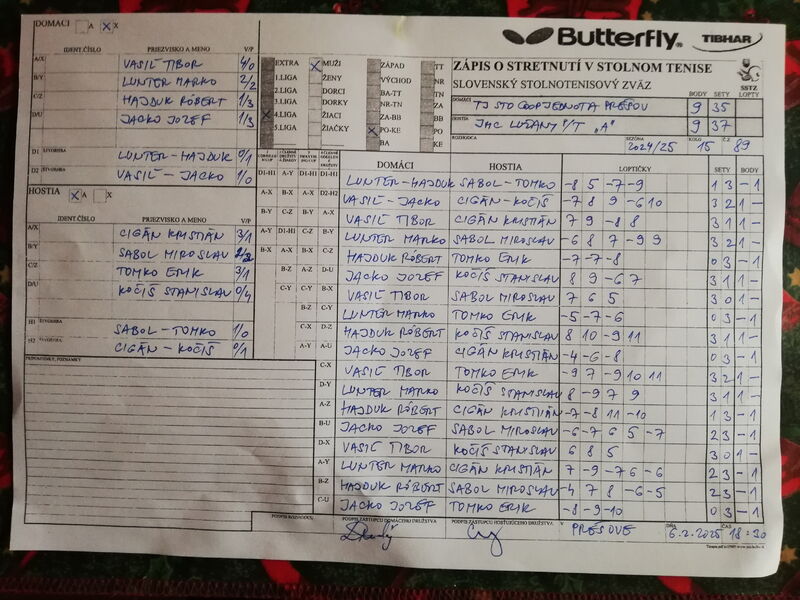 DOMÁCI A X X
Butterfly TIBHAR
ZÁPIS O STRETNUTÍ V STOLNOM TENISE
SLOVENSKÝ STOLNOTENISOVÝ ZVÄZ
SSTZ
BODY SETY LOPTY
DOMÁCI TJ STO COOPJEDNOTA PREŠOV 9 35
HOSTIA JMC LUŽANY P/T "A" 9 37
ROZHODCA SEZÓNA 2024/25 KOLO 15 Č.Z. 89
IDENT.ČÍSLO PRIEZVISKO A MENO V/P
A/X VASIĽ TIBOR 4/0
B/Y LUNTER MARKO 2/2
C/Z HAJDUK RÓBERT 1/3
D/U JACKO JOZEF 1/3
D1 ŠTVORHRA LUNTER-HAJDUK 0/1
D2 ŠTVORHRA VASIĽ - JACKO 1/0
EXTRA X MUŽI ZÁPAD TT
1.LIGA ŽENY VÝCHOD NR
2.LIGA DORCI BA-TT TN
3.LIGA DORKY NR-TN ZA
X 4.LIGA ŽIACI ZA-BB BB
5.LIGA ŽIAČKY X PO-KE PO
BA KE
HOSTIA X A X
IDENT.ČÍSLO PRIEZVISKO A MENO V/P
A/X CIGÁN KRISTIÁN 3/1
B/Y SABOL MIROSLAV 2/2
C/Z TOMKO ERIK 3/1
D/U KOČIŠ STANISLAV 0/4
H1 ŠTVORHRA SABOL-TOMKO 1/0
H2 ŠTVORHRA CIGÁN - KOČIŠ 0/1
PRIPOMIENKY, POZNÁMKY
DOMÁCI HOSTIA LOPTIČKY SETY BODY
LUNTER-HAJDUK SABOL-TOMKO -8 5 -7 -9 1 3 - 1
VASIĽ - JACKO CIGÁN-KOČIŠ -7 8 9 -6 10 3 2 1 -
VASIĽ TIBOR CIGÁN KRISTIÁN 7 9 -8 8 3 1 1 -
LUNTER MARKO SABOL MIROSLAV -6 8 7 -9 9 3 2 1 -
HAJDUK RÓBERT TOMKO ERIK -7 -7 -8 0 3 - 1
JACKO JOZEF KOČIŠ STANISLAV 8 9 -6 7 3 1 1 -
VASIĽ TIBOR SABOL MIROSLAV 7 6 5 3 0 1 -
LUNTER MARKO TOMKO ERIK -5 -7 -6 0 3 - 1
HAJDUK RÓBERT KOČIŠ STANISLAV 8 10 -9 11 3 1 1 -
JACKO JOZEF CIGÁN KRISTIÁN -4 -6 -8 0 3 - 1
VASIĽ TIBOR TOMKO ERIK -9 7 -9 10 11 3 2 1 -
LUNTER MARKO KOČIŠ STANISLAV 8 -9 7 9 3 1 1 -
HAJDUK RÓBERT CIGÁN KRISTIÁN -7 -8 11 -10 1 3 - 1
JACKO JOZEF SABOL MIROSLAV -6 -7 6 5 -7 2 3 - 1
VASIĽ TIBOR KOČIŠ STANISLAV 6 8 5 3 0 1 -
LUNTER MARKO CIGÁN KRISTIÁN 7 -9 -7 6 -6 2 3 - 1
HAJDUK RÓBERT SABOL MIROSLAV -4 7 8 -6 -5 2 3 - 1
JACKO JOZEF TOMKO ERIK -8 -9 -10 0 3 - 1
PODPIS ROZHODCU PODPIS ZÁSTUPCU DOMÁCEHO DRUŽSTVA PODPIS ZÁSTUPCU HOSŤUJÚCEHO DRUŽSTVA V PREŠOVE DŇA 6.2.2025 ČAS 18:30